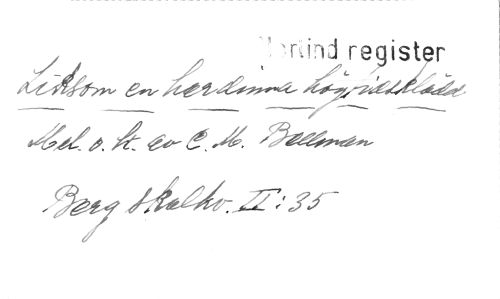 Norlind register
Liksom en herdinna högtidsklädd
Mel. o. t. av C. M. Bellman
Berg Skalko. II: 35